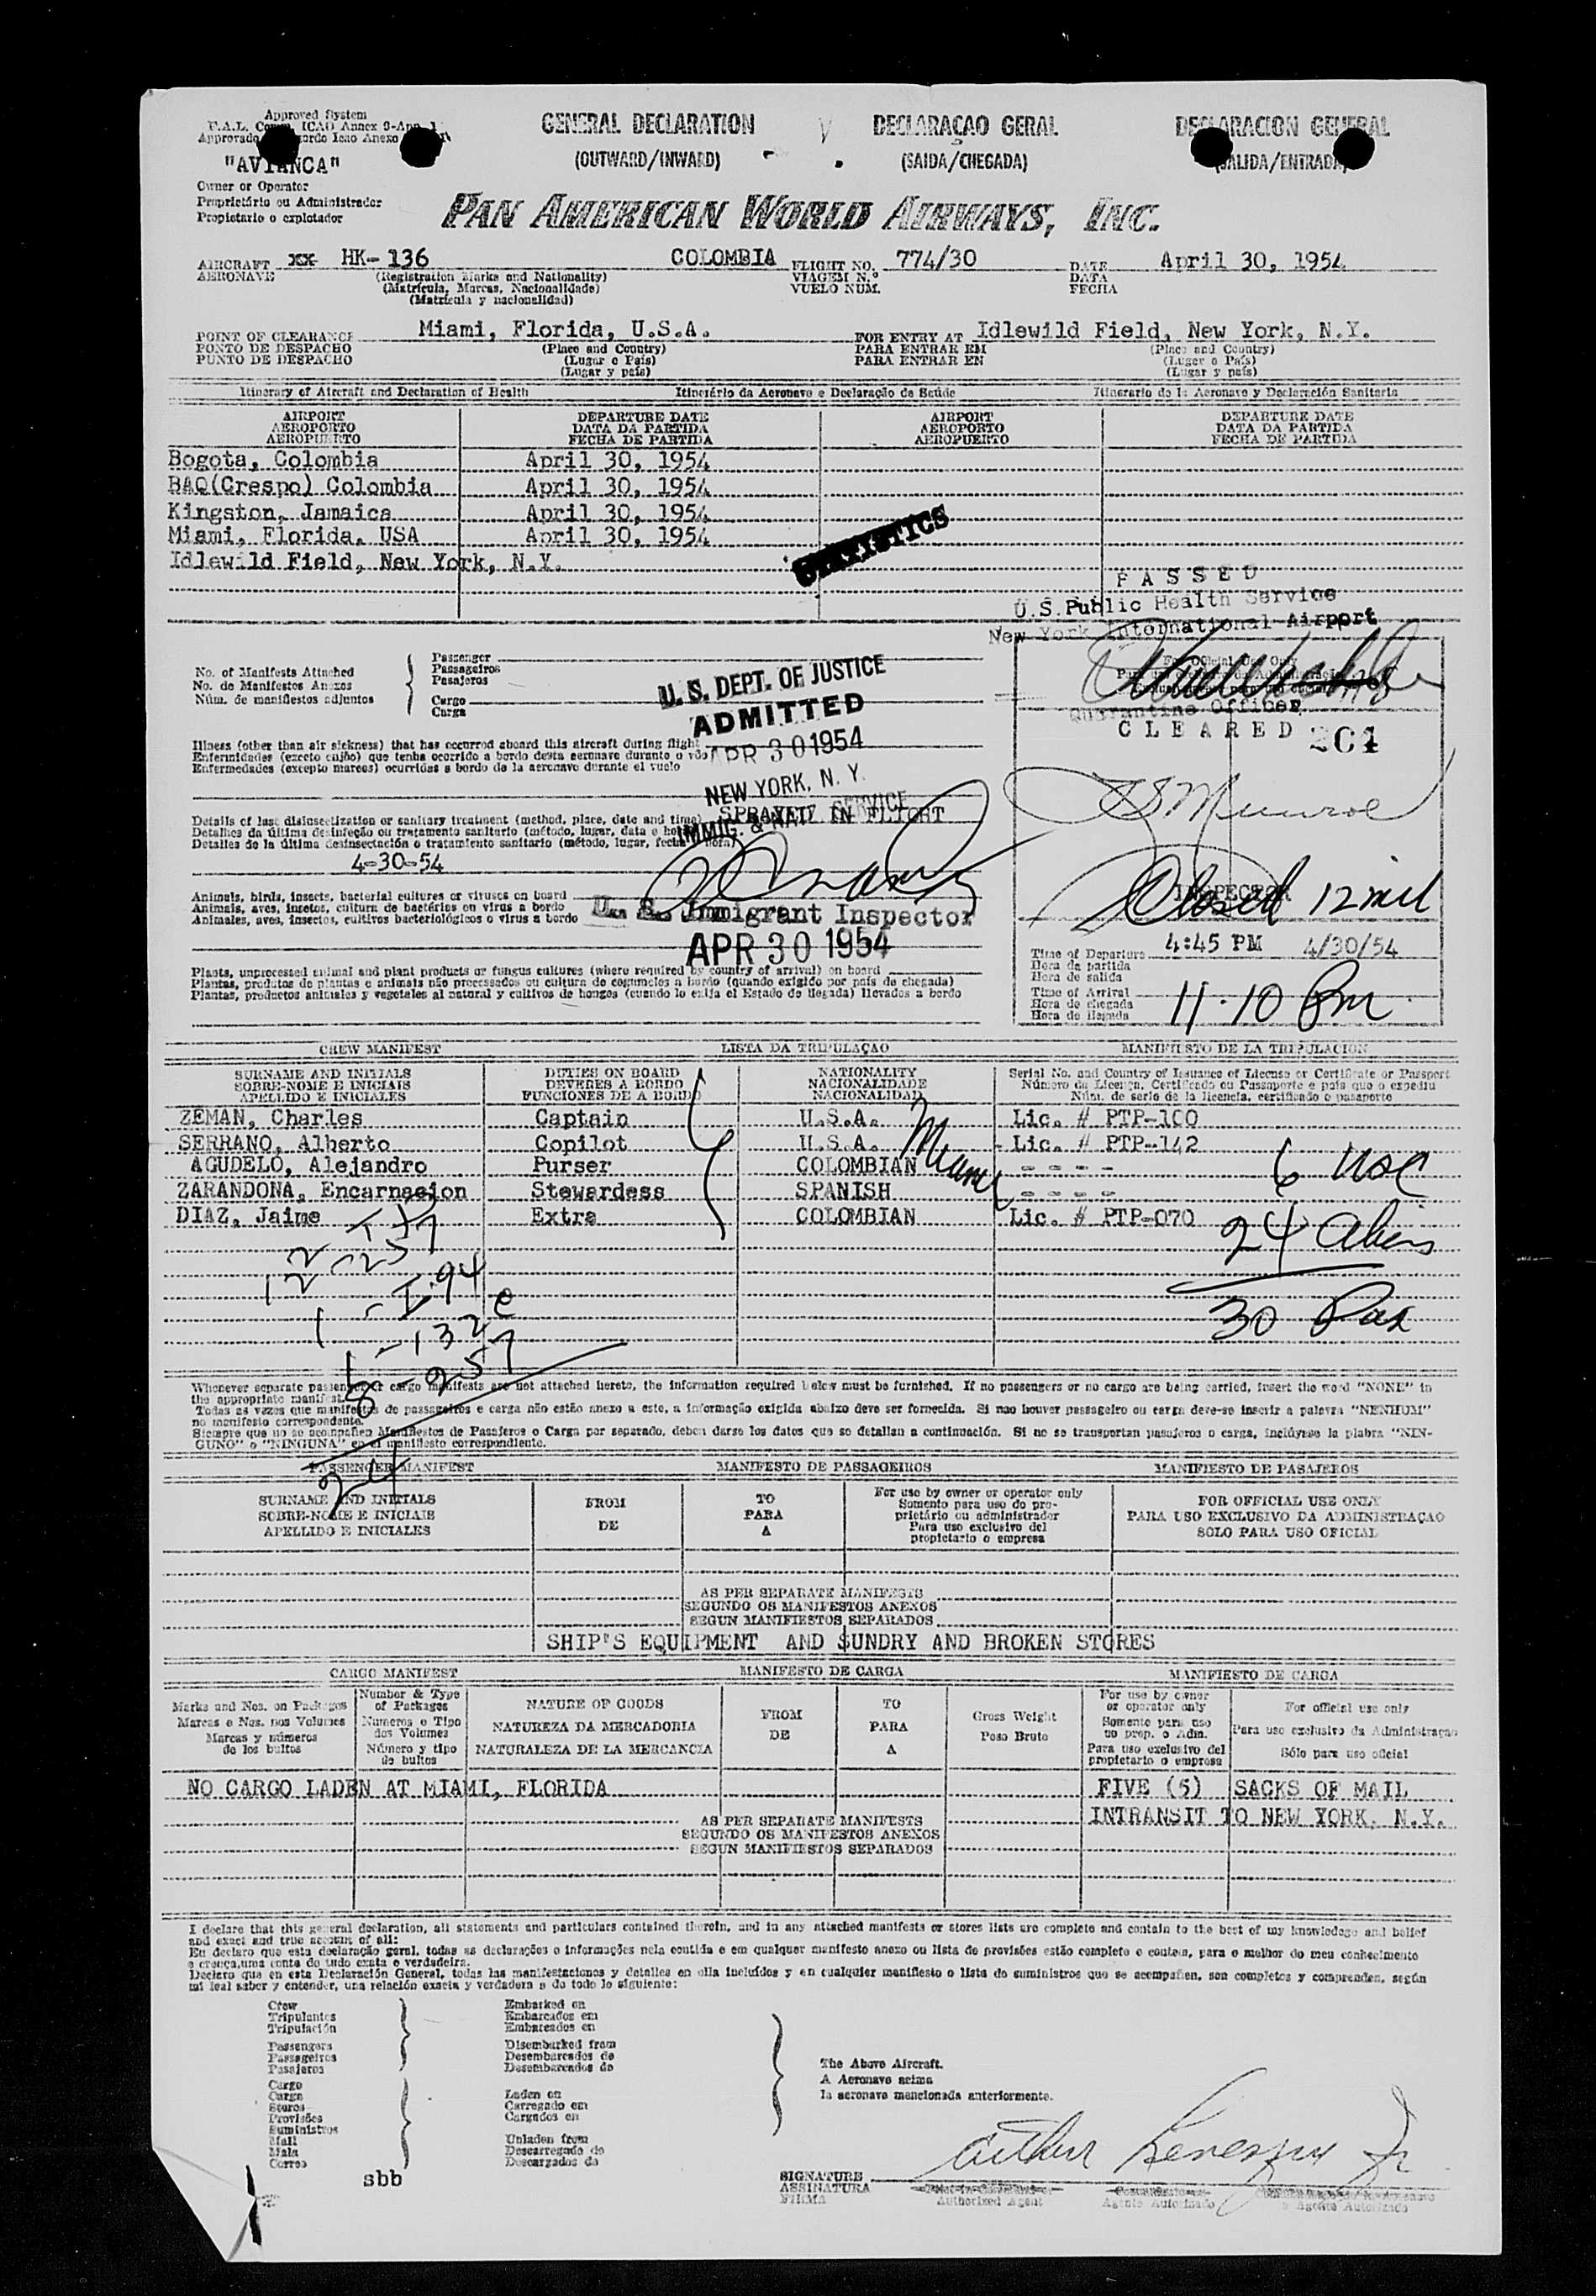 Approved System
F.A.L. ICAO Annex 9-App. 1
Aprovado Icao Anexo
"AVIANCA"
Owner or Operator
Proprietário ou Administrador
Propietario o explotador
GENERAL DECLARATION
(OUTWARD/INWARD)
DECLARAÇAO GERAL
(SAIDA/CHEGADA)
DECLARACION GENERAL
(SALIDA/ENTRADA)
PAN AMERICAN WORLD AIRWAYS, INC.
AIRCRAFT xx HK-136 COLOMBIA FLIGHT NO. 774/30 DATE April 30, 1954
AERONAVE (Registration Marks and Nationality) VIAGEM N.º DATA
(Matrícula, Marcas, Nacionalidade) VUELO NUM. FECHA
(Matrícula y nacionalidad)
POINT OF CLEARANCE Miami, Florida, U.S.A. FOR ENTRY AT Idlewild Field, New York, N.Y.
PONTO DE DESPACHO (Place and Country) PARA ENTRAR EM (Place and Country)
PUNTO DE DESPACHO (Lugar e País) PARA ENTRAR EN (Lugar e País)
(Lugar y país) (Lugar y país)
Itinerary of Aircraft and Declaration of Health Itinerário da Aeronave e Declaração de Saúde Itinerario de la Aeronave y Declaración Sanitaria
AIRPORT DEPARTURE DATE AIRPORT DEPARTURE DATE
AEROPORTO DATA DA PARTIDA AEROPORTO DATA DA PARTIDA
AEROPUERTO FECHA DE PARTIDA AEROPUERTO FECHA DE PARTIDA
Bogota, Colombia April 30, 1954
BAQ(Crespo) Colombia April 30, 1954
Kingston, Jamaica April 30, 1954
Miami, Florida, USA April 30, 1954
Idlewild Field, New York, N.Y.
STATISTICS
PASSED
U.S. Public Health Service
New York International Airport
Quarantine Officer
For Official Use Only
CLEARED 204
Munroe
INSPECTOR
Closed 12 mid
No. of Manifests Attached
No. de Manifestos Anexos
Núm. de manifiestos adjuntos
Passenger
Passageiros
Pasajeros
Cargo
Carga
U. S. DEPT. OF JUSTICE
ADMITTED
APR 30 1954
NEW YORK, N. Y.
IMMIG. & NAT. SERVICE
Illness (other than air sickness) that has occurred aboard this aircraft during flight
Enfermidades (exceto enjôo) que tenha ocorrido a bordo desta aeronave durante o vôo
Enfermedades (excepto mareos) ocurridas a bordo de la aeronave durante el vuelo
Details of last disinsectization or sanitary treatment (method, place, date and time) SPRAYED IN FLIGHT
Detalhes da última desinfeção ou tratamento sanitario (método, lugar, data e hora)
Detalles de la última desinsectación o tratamiento sanitario (método, lugar, fecha hora)
4-30-54
Animals, birds, insects, bacterial cultures or viruses on board
Animais, aves, insetos, cultura de bactérias ou virus a bordo
Animales, aves, insectos, cultivos bacteriológicos o virus a bordo
U. S. Immigrant Inspector
APR 30 1954
Plants, unprocessed animal and plant products or fungus cultures (where required by country of arrival) on board
Plantas, produtos de plantas e animais não processados ou cultura de cogumelos a bordo (quando exigido por país de chegada)
Plantas, productos animales y vegetales al natural y cultivos de hongos (cuando lo exija el Estado de llegada) llevados a bordo
Time of Departure 4:45 PM 4/30/54
Hora da partida
Hora de salida
Time of Arrival 11:10 Pm
Hora de chegada
Hora de llegada
CREW MANIFEST LISTA DA TRIPULAÇAO MANIFIESTO DE LA TRIPULACION
SURNAME AND INITIALS DUTIES ON BOARD NATIONALITY Serial No. and Country of Issuance of License or Certificate or Passport
SOBRE-NOME E INICIAIS DEVERES A BORDO NACIONALIDADE Número da Licença, Certificado ou Passaporte e país que o expediu
APELLIDO E INICIALES FUNCIONES DE A BORDO NACIONALIDAD Núm. de serie de la licencia, certificado o pasaporte
ZEMAN, Charles Captain U.S.A. Lic. # PTP-100
SERRANO, Alberto Copilot U.S.A. Lic. # PTP-142
AGUDELO, Alejandro Purser COLOMBIAN - - - -
ZARANDONA, Encarnacion Stewardess SPANISH - - - -
DIAZ, Jaime Extra COLOMBIAN Lic. # PTP-070
Miami
6 USC
24 Aliens
30 Pax
1 - I-94
8 - 257
24
Whenever separate passenger or cargo manifests are not attached hereto, the information required below must be furnished. If no passengers or no cargo are being carried, insert the word "NONE" in
the appropriate manifest.
Todas as vezes que manifestos de passageiros e carga não estão anexo a este, a informação exigida abaixo deve ser fornecida. Si nao houver passageiro ou carga deve-se inscrir a palavra "NENHUM"
no manifesto correspondente.
Siempre que no se acompañen Manifiestos de Pasajeros o Carga por separado, deben darse los datos que se detallan a continuación. Si no se transportan pasajeros o carga, inclúyase la plabra "NIN-
GUNO" o "NINGUNA" en el manifiesto correspondiente.
PASSENGER MANIFEST MANIFESTO DE PASSAGEIROS MANIFIESTO DE PASAJEROS
SURNAME AND INITIALS FROM TO For use by owner or operator only FOR OFFICIAL USE ONLY
SOBRE-NOME E INICIAIS DE PARA Somente para uso do pro- PARA USO EXCLUSIVO DA ADMINISTRAÇAO
APELLIDO E INICIALES A prietário ou administrador SOLO PARA USO OFICIAL
Para uso exclusivo del
propietario o empresa
AS PER SEPARATE MANIFESTS
SEGUNDO OS MANIFESTOS ANEXOS
SEGUN MANIFIESTOS SEPARADOS
SHIP'S EQUIPMENT AND SUNDRY AND BROKEN STORES
CARGO MANIFEST MANIFESTO DE CARGA MANIFIESTO DE CARGA
Marks and Nos. on Packages Number & Type of Packages NATURE OF GOODS FROM TO Gross Weight For use by owner or operator only For official use only
Marcas e Nos. nos Volumes Numeros e Tipo dos Volumes NATUREZA DA MERCADORIA DE PARA Peso Bruto Somente para uso do prop. o Adm. Para uso exclusivo da Administraçao
Marcas y números de los bultos Número y tipo de bultos NATURALEZA DE LA MERCANCIA A Para uso exclusivo del propietario o empresa Sólo para uso oficial
NO CARGO LADEN AT MIAMI, FLORIDA FIVE (5) SACKS OF MAIL
INTRANSIT TO NEW YORK, N.Y.
AS PER SEPARATE MANIFESTS
SEGUNDO OS MANIFESTOS ANEXOS
SEGUN MANIFIESTOS SEPARADOS
I declare that this general declaration, all statements and particulars contained therein, and in any attached manifests or stores lists are complete and contain to the best of my knowledge and belief
and exact and true account of all:
Eu declaro que esta declaração geral, todas as declarações e informações nela contida e em qualquer manifesto anexo ou lista de provisões estão completo e contem, para o melhor do meu conhecimento
e crença, uma conta de tudo exata e verdadeira.
Declaro que en esta Declaración General, todas las manifestaciones y detalles en ella incluídos y en cualquier manifiesto o lista de suministros que se acompañen, son completos y comprenden, según
mi leal saber y entender, una relación exacta y verdadera a de todo lo siguiente:
Crew Embarked on
Tripulantes Embarcados em
Tripulación Embarcados en
Passengers Disembarked from
Passageiros Desembarcados de
Pasajeros Desembarcados de
The Above Aircraft.
A Aeronave acima
la aeronave mencionada anteriormente.
Cargo Laden on
Carga Carregado em
Stores Cargados en
Provisões
Suministros
Mail Unladen from
Mala Descarregado de
Correo Descargados de
sbb
SIGNATURE Arthur Jr
ASSINATURA Authorized Agent Agente Autorizado Agente Autorizado
FIRMA